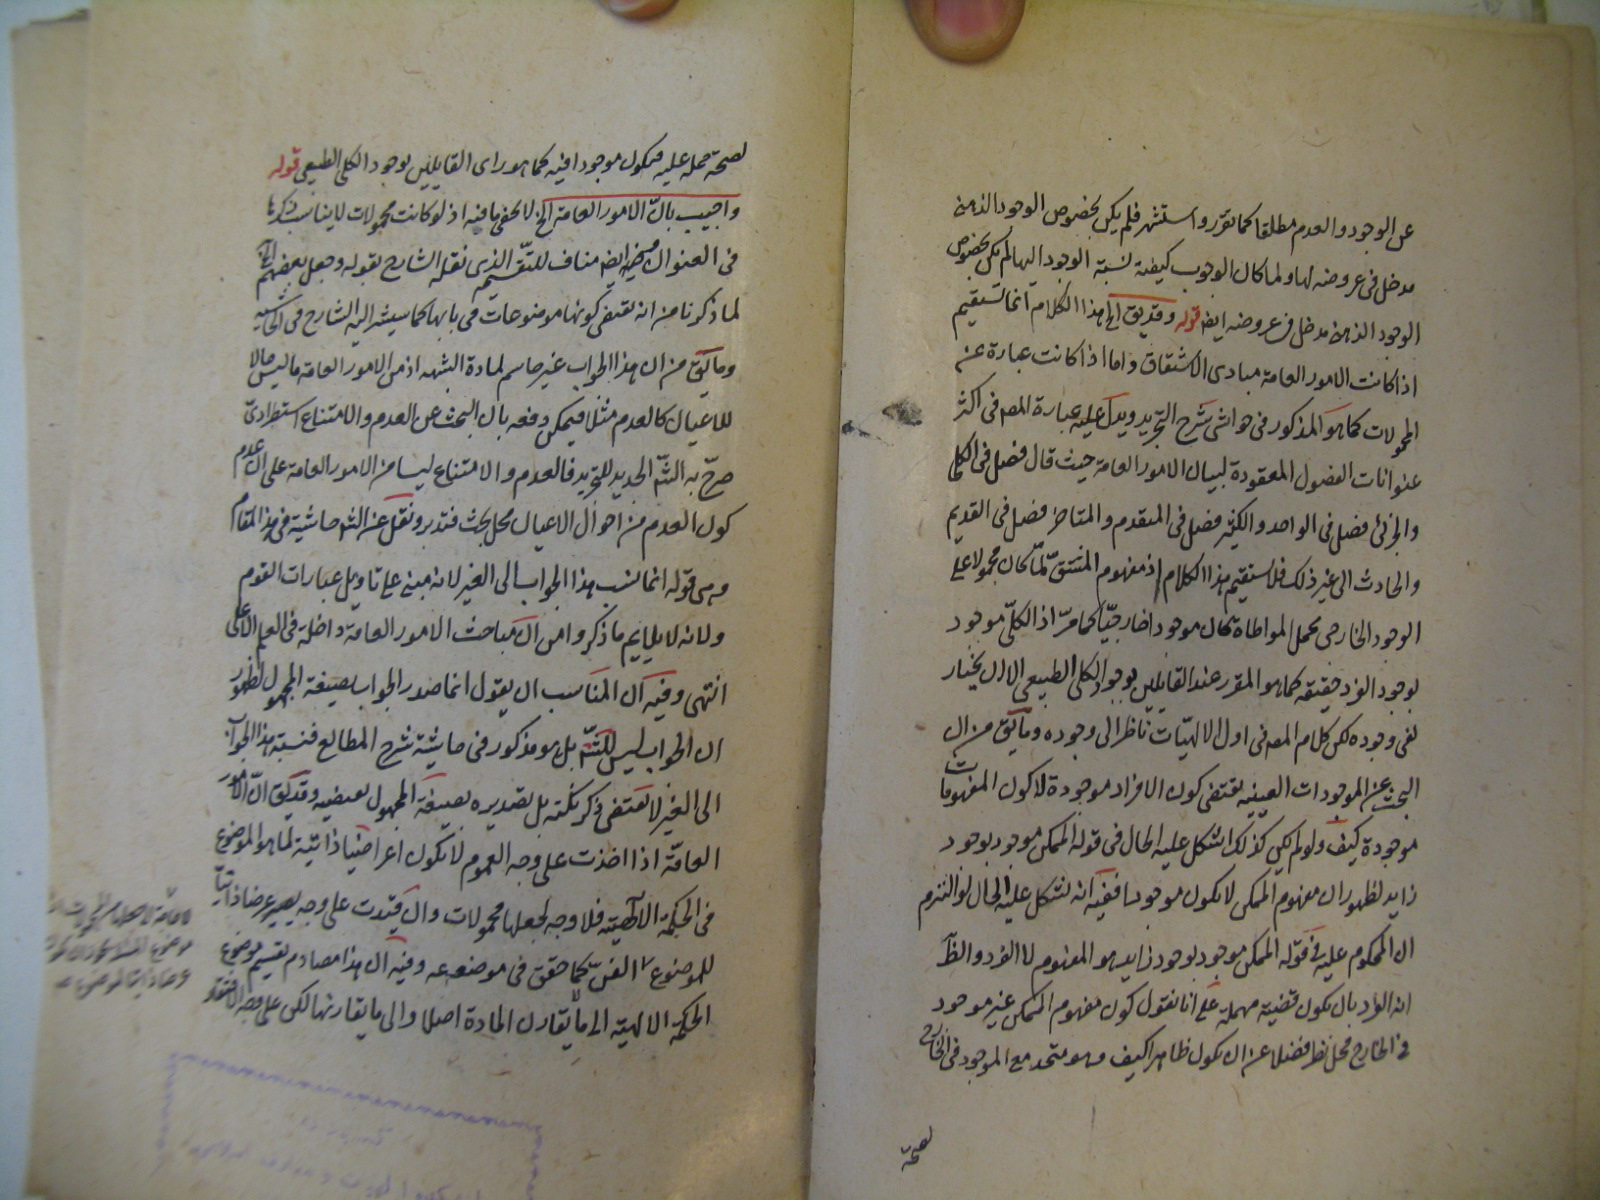 عن الوجود والعدم مطلقا كما تقرر واستشهر فلم يكن لخصوص الوجود الذهنى
مدخل فى عروضه لها ولما كان الوجوب كيفية نسبة الوجود اليها لم يكن لخصوص
الوجود الذهنى مدخل فى عروضه ايضا قوله وقد يق الخ هذا الكلام انما يستقيم
اذا كانت الامور العامة مبادى الاشتقاق واما اذا كانت عبارة عن
المحمولات كما هو المذكور فى حواشى شرح التجريد ويدل عليه عبارة المص فى اكثر
عنوانات الفصول المعقودة لبيان الامور العامة حيث قال فصل فى الكلى
والجزئى فصل فى الواحد والكثير فصل فى المتقدم والمتاخر فصل فى القديم
والحادث الى غير ذلك فلا يستقيم هذا الكلام اذ مفهوم المشتق لما كان محمولا على
الوجود الخارجى بحمل المواطاة كان موجودا خارجيا كما مر اذ الكلى موجود
بوجود الفرد حقيقة كما هو المقرر عند القايلين بوجود الكلى الطبيعى الاول يختار
نفى وجوده لكن كلام المص فى اول الالهيات ناظر الى وجوده وما يق من ان
البحث عن الموجودات العينية يقتضى كون الافراد موجودة لا كون المفهومات
موجودة كيف ولو لم يكن كذلك اشكل عليه الحال فى قوله الممكن موجود بوجود
زايد لظهور ان مفهوم الممكن لا يكون موجودا ففيه انه يشكل عليه الحال لو التزم
ان المحكوم عليه فى قوله الممكن موجود بوجود زايد هو المفهوم لا الفرد والظ
انه الفرد بان يكون قضية مهملة على انا نقول كون مفهوم الممكن غير موجود
فى الخارج محل نظر فضلا عن ان يكون ظاهرا كيف وهو متحد مع الموجود فى الخارج
لصحة
لصحة حمله عليه فيكون موجودا فيه كما هو راى القايلين بوجود الكلى الطبيعى قوله
واجيب بان الامور العامة الخ لا يخفى ما فيه اذ لو كانت محمولات لا يناسب ذكرها
فى العنوان ايضا مناف للتقسيم الذى نقله الشارح بقوله وجعل بعضهم الخ
لما ذكرنا من انه يقتضى كونها موضوعات فى بابها كما سيشير اليه الشارح فى الحاشية
وما يق من ان هذا الجواب غير حاسم لمادة الشبهه اذ من الامور العامة ما ليس حالا
للاعيان كالعدم مثلا فيمكن دفعه بان البحث عن العدم والامتناع استطرادى
صرح به الش الجديد للتجريد فالعدم والامتناع ليسا من الامور العامة على ان عدم
كون العدم من احوال الاعيان محل بحث فتدبر ونقل عن الش حاشية فى هذا المقام
وهى قوله انما نسب هذا الجواب الى الغير لانه مبنى على تاويل عبارات القوم
ولانه لا يلايم ما ذكروا من ان مباحث الامور العامة داخلة فى العلم الاعلى
انتهى وفيه ان المناسب ان يقول انما صدر الجواب بصيغة المجهول لظهور
ان الجواب ليس للش بل هو مذكور فى حاشية شرح المطالع فنسبة هذا الجواب
الى الغير لا يقتضى ذكر نكتة بل تصديره بصيغة المجهول يقتضيه وقد يق ان الامور
العامة اذا اخذت على وجه العموم لا يكون اعراضا ذاتية لما هو الموضوع
فى الحكمة الالهية فلا وجه لجعلها محمولات وان قيدت على وجه يصير عرضا ذاتيا
للموضوع الفن كما حقق فى موضعه وفيه ان هذا مصادم تقسيم موضوع
الحكمة الالهية الى ما يقارن المادة اصلا والى ما يقارنها لكن على وجه الافتقار